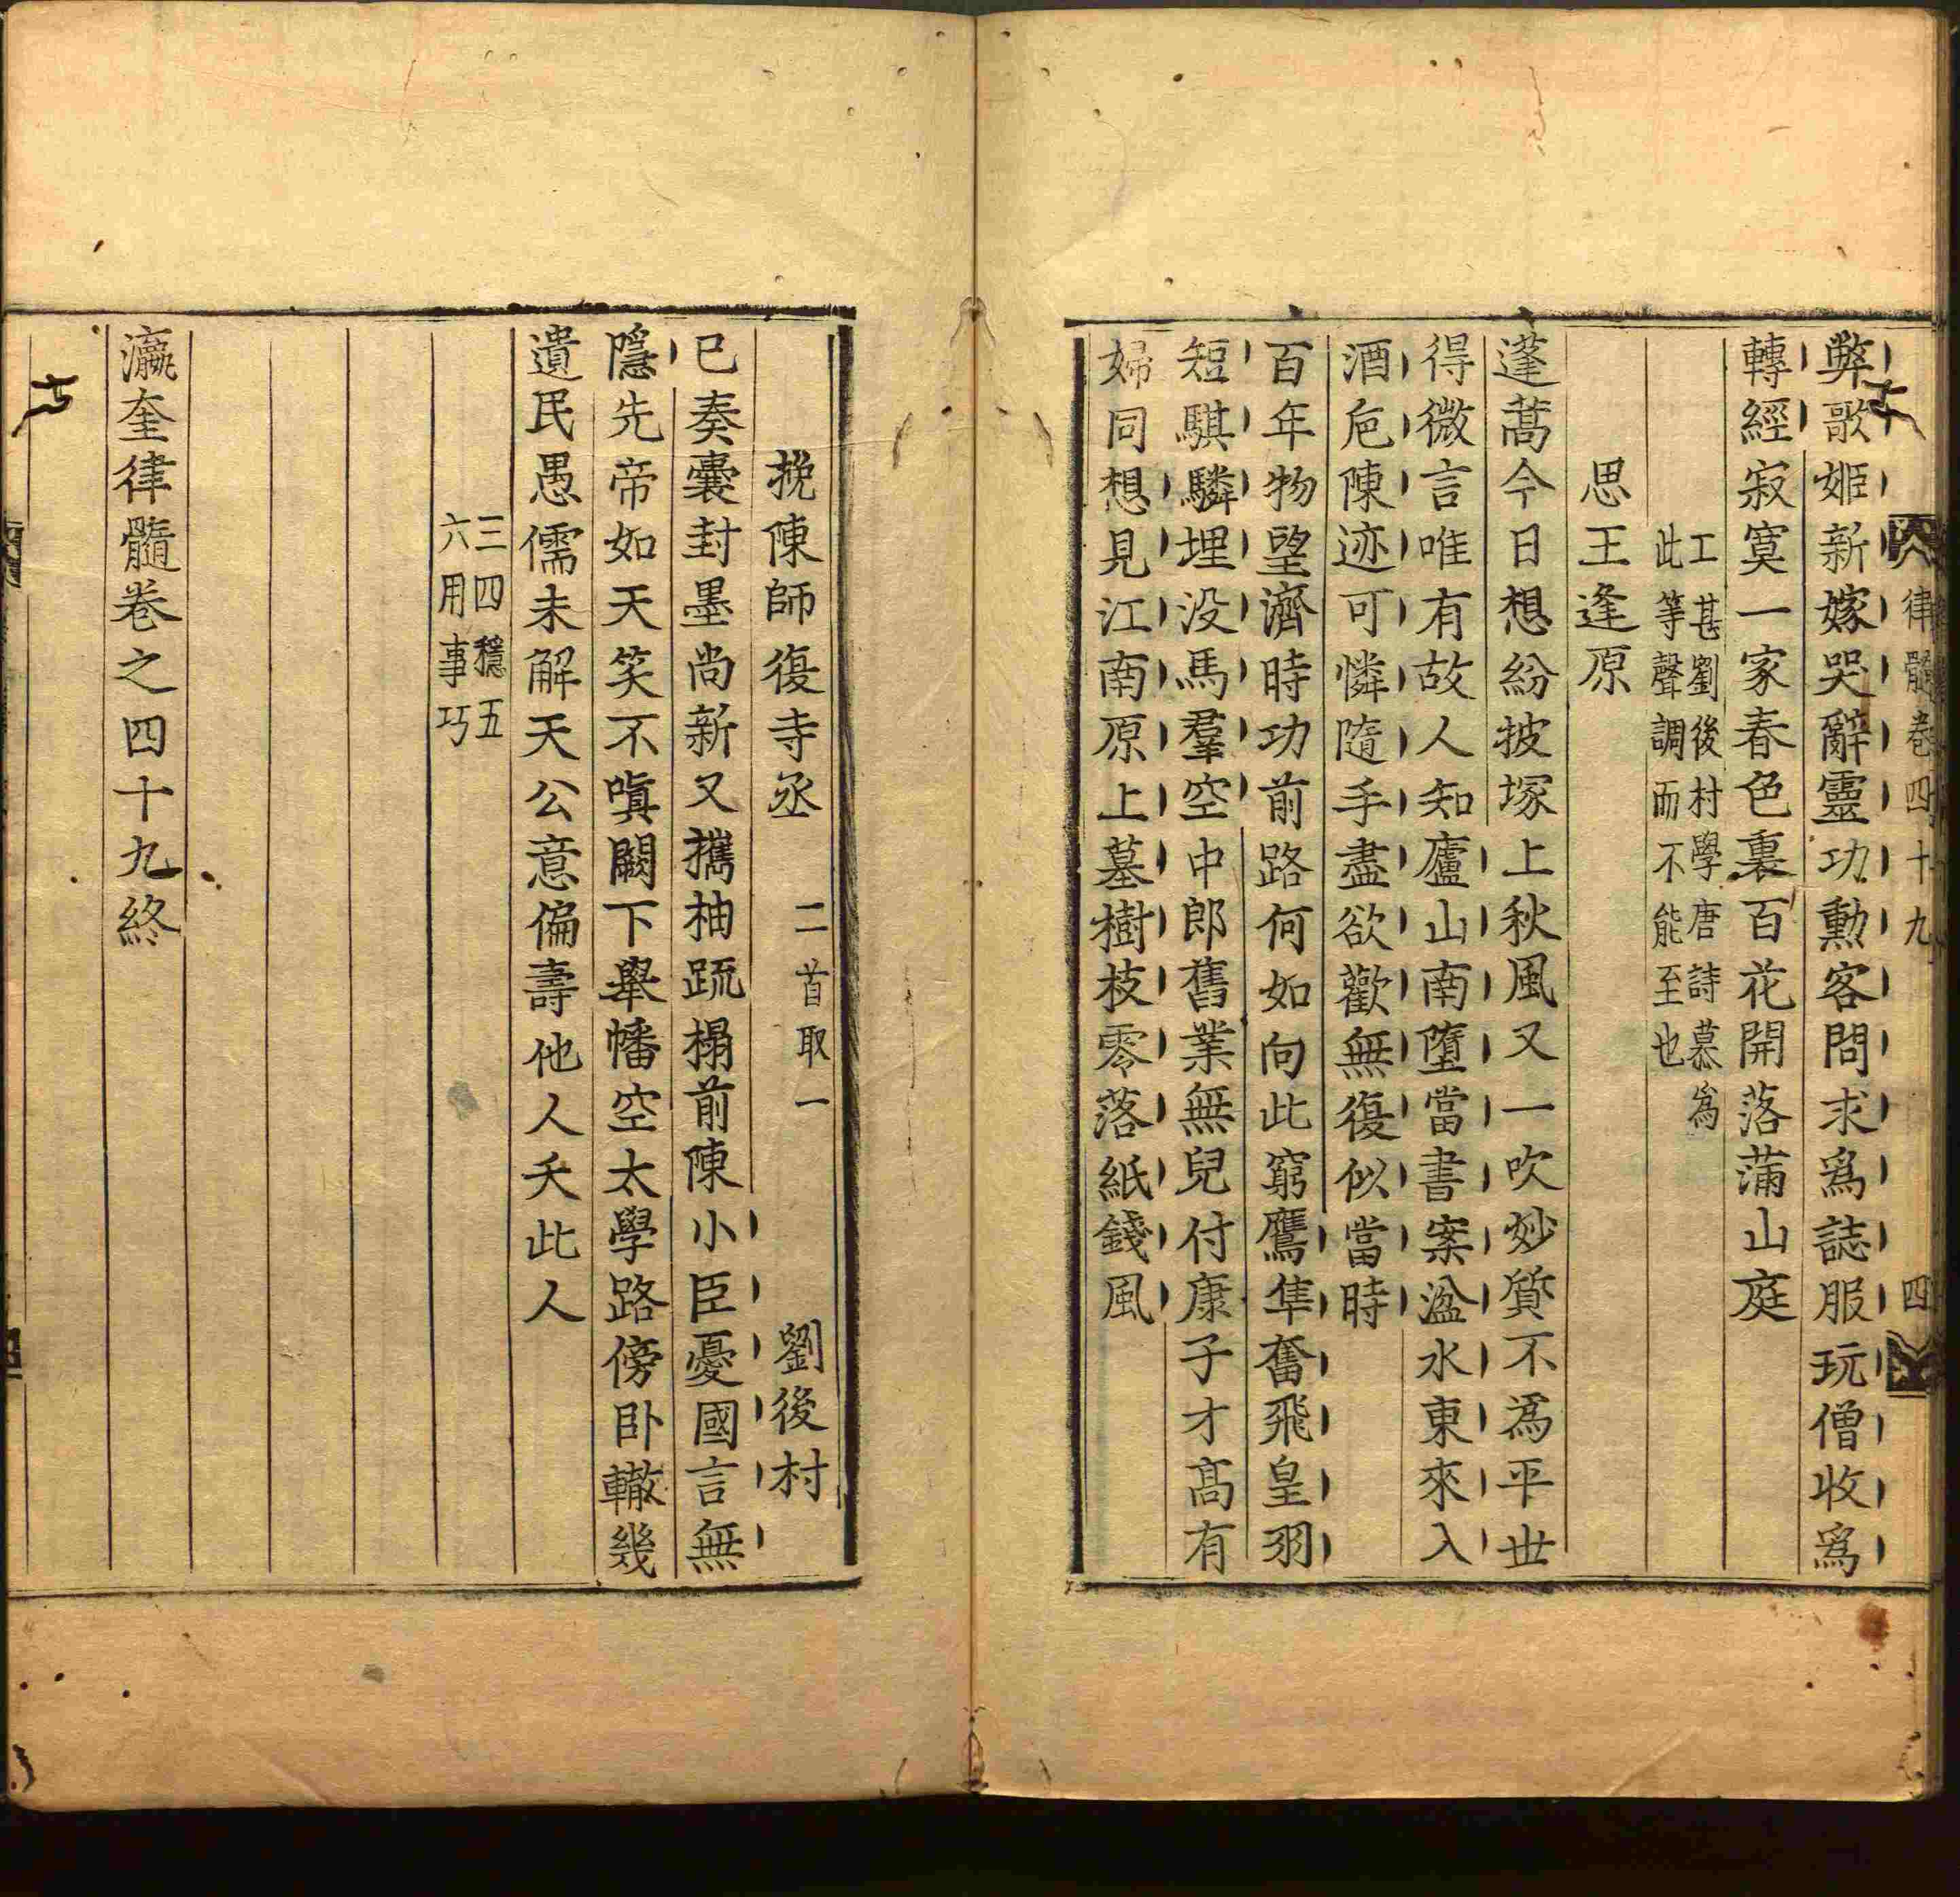 律髓卷四十九
四
弊歌姬新嫁哭辭靈功勳客問求爲誌服玩僧收爲
轉經寂寞一家春色裏百花開落蒲山庭
工甚劉後村學唐詩慕爲
此等聲調而不能至也
思王逢原
蓬蒿今日想紛披塚上秋風又一吹妙質不爲平世
得微言唯有故人知廬山南墮當書案湓水東來入
酒巵陳迹可憐隨手盡欲歡無復似當時
百年物望濟時功前路何如向此窮鷹隼奮飛皇羽
短騏驎埋没馬羣空中郎舊業無兒付康子才高有
婦同想見江南原上墓樹枝零落紙錢風
挽陳師復寺丞 二首取一 劉後村
已奏囊封墨尚新又攜柚䟽榻前陳小臣憂國言無
隱先帝如天笑不嗔闕下舉幡空太學路傍卧轍幾
遺民愚儒未解天公意偏壽他人夭此人
三四穩五
六用事巧
瀛奎律髓卷之四十九終